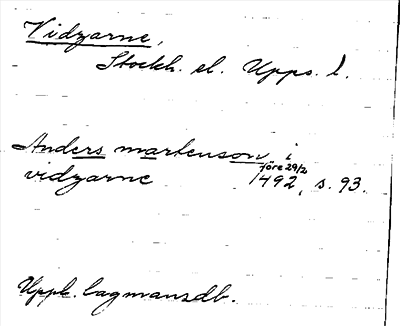 Vidzarne,
Stockh. el. Upps. l.
Anders martenson i
vidzarne före 29/2 1492, s. 93.
Uppl. lagmansdb.